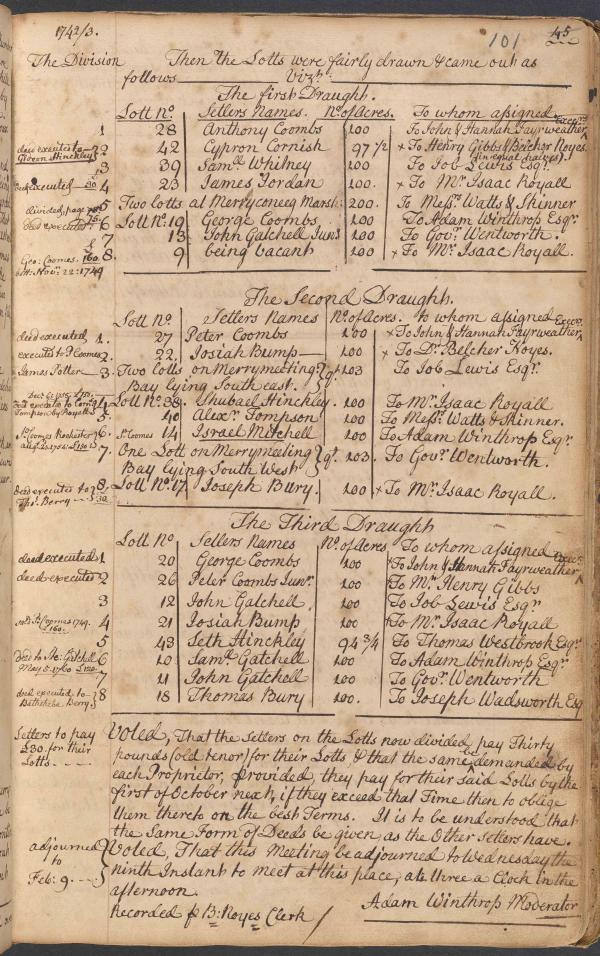 1742/3. 101 45
The Division Then the Lotts were fairly drawn & came out as
follows Vizt:
The first Draught.
Lott No. Setlers Names. No. of Acres. To whom assigned
1 28 Anthony Coombs 100 To John & Hannah Fayrweather Execrs
deed executed to Gideon Hinckley 2 42 Cypron Cornish 97 1/2 × To Henry Gibbs & Belcher Noyes. (in equal halves)
3 39 Saml. Whitney 100 To Job Lewis Esqr.
Deed executed 4 23 James Jordan 100. × To Mr. Isaac Royall
divided, page 5 Two Lotts at Merryconeeg Marsh 200. To Messrs. Watts & Skinner
deed executed 6 Lott No: 19 George Coombs 100 To Adam Winthrop Esqr.
7 13 John Gatchell Junr. 100 To Govr. Wentworth.
Geo: Coomes. 160 8. 9 being vacant 100 × To Mr. Isaac Royall.
Nov: 22: 1749
The Second Draught.
Lott No. Setlers Names No. of Acres. To whom assigned
deed executed 1. 27 Peter Coombs 100 × To John & Hannah Fayrweather Execrs
executed to P. Coomes 2. 22. Josiah Bump 100 × To Dr. Belcher Noyes.
James Potter 3. Two Lotts on Merrymeeting Bay lying South east. qt. 103 To Job Lewis Esqr.
4 Lott No: 38. Shubael Hinckley 100 To Mr. Isaac Royall
Tompson by Royall 5 40 Alexr. Tompson 100 To Messrs. Watts & Skinner.
6. 14 Israel Mitchell 100 To Adam Winthrop Esqr.
7. One Lott on Merrymeeting Bay lying South West qt. 103. To Govr. Wentworth.
Deed executed to Thos. Berry 8. Lott No. 17. Joseph Bury. 100 × To Mr. Isaac Royall.
The Third Draught
Lott No Setlers Names No. of Acres To whom assigned
deed executed 1 20 George Coombs 100 × To John & Hannah Fayrweather Execrs
deed executed 2 26 Peter Coombs Junr. 100 × To Mr. Henry Gibbs
3 12 John Gatchell. 100 To Job Lewis Esqr.
Coomes 1749. 160. 4 21 Josiah Bump 100 × To Mr. Isaac Royall
5 43 Seth Hinckley 94 3/4 × To Thomas Westbrook Esqr
Deed to Jno: Gatchell 6 10 Saml. Gatchell 100 To Adam Winthrop Esqr.
May 5. 1760 7 11 John Gatchell 100 To Govr. Wentworth
deed executed to Bathsheba Berry 8 18 Thomas Bury 100. To Joseph Wadsworth Esq
Setlers to pay £30. for their Lotts
Voted, That the Setlers on the Lotts now divided pay Thirty
pounds (old tenor) for their Lotts & that the same be demanded by
each Proprietor, provided, they pay for their said Lotts by the
first of October next, if they exceed that Time then to oblige
them thereto on the best Terms. It is to be understood that
the Same Form of Deeds be given as the Other Setlers have.
adjourned to Feb: 9.
Voted, That this Meeting be adjourned to Wednesday the
ninth Instant to meet at this place, at three a Clock in the
afternoon.
Adam Winthrop Moderator
Recorded p B: Noyes Clerk